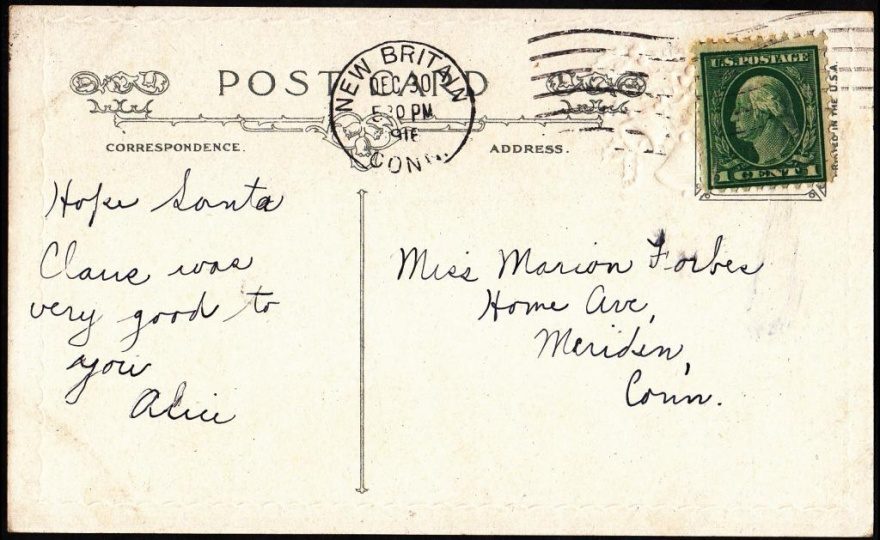 POST CARD
NEW BRITAIN
DEC 30
5 30 PM
1916
CONN.
U.S. POSTAGE
1 CENT 1
IN THE U.S.A.
CORRESPONDENCE.
ADDRESS.
Hope Santa
Claus was
very good to
you
Alice
Miss Marion Forbes
Home Ave,
Meriden,
Conn.